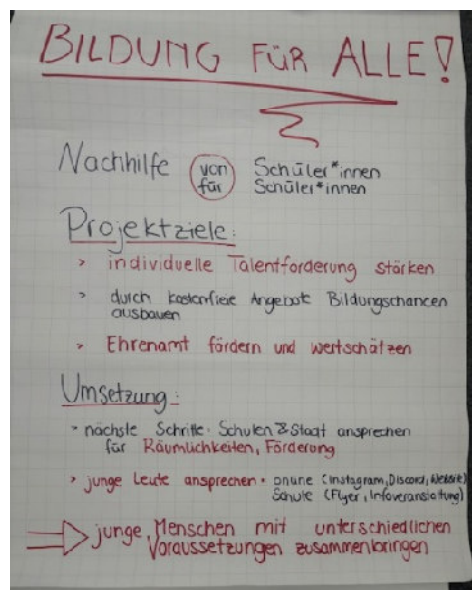 BILDUNG FÜR ALLE!
Nachhilfe von Schüler*innen
für Schüler*innen
Projektziele:
> individuelle Talentförderung stärken
> durch kostenfreie Angebote Bildungschancen
ausbauen
> Ehrenamt fördern und wertschätzen
Umsetzung:
> nächste Schritte: Schulen & Staat ansprechen
für Räumlichkeiten, Förderung
> junge Leute ansprechen: online (Instagram, Discord, Website)
Schule (Flyer, Infoveranstaltung)
junge Menschen mit unterschiedlichen
Voraussetzungen zusammenbringen